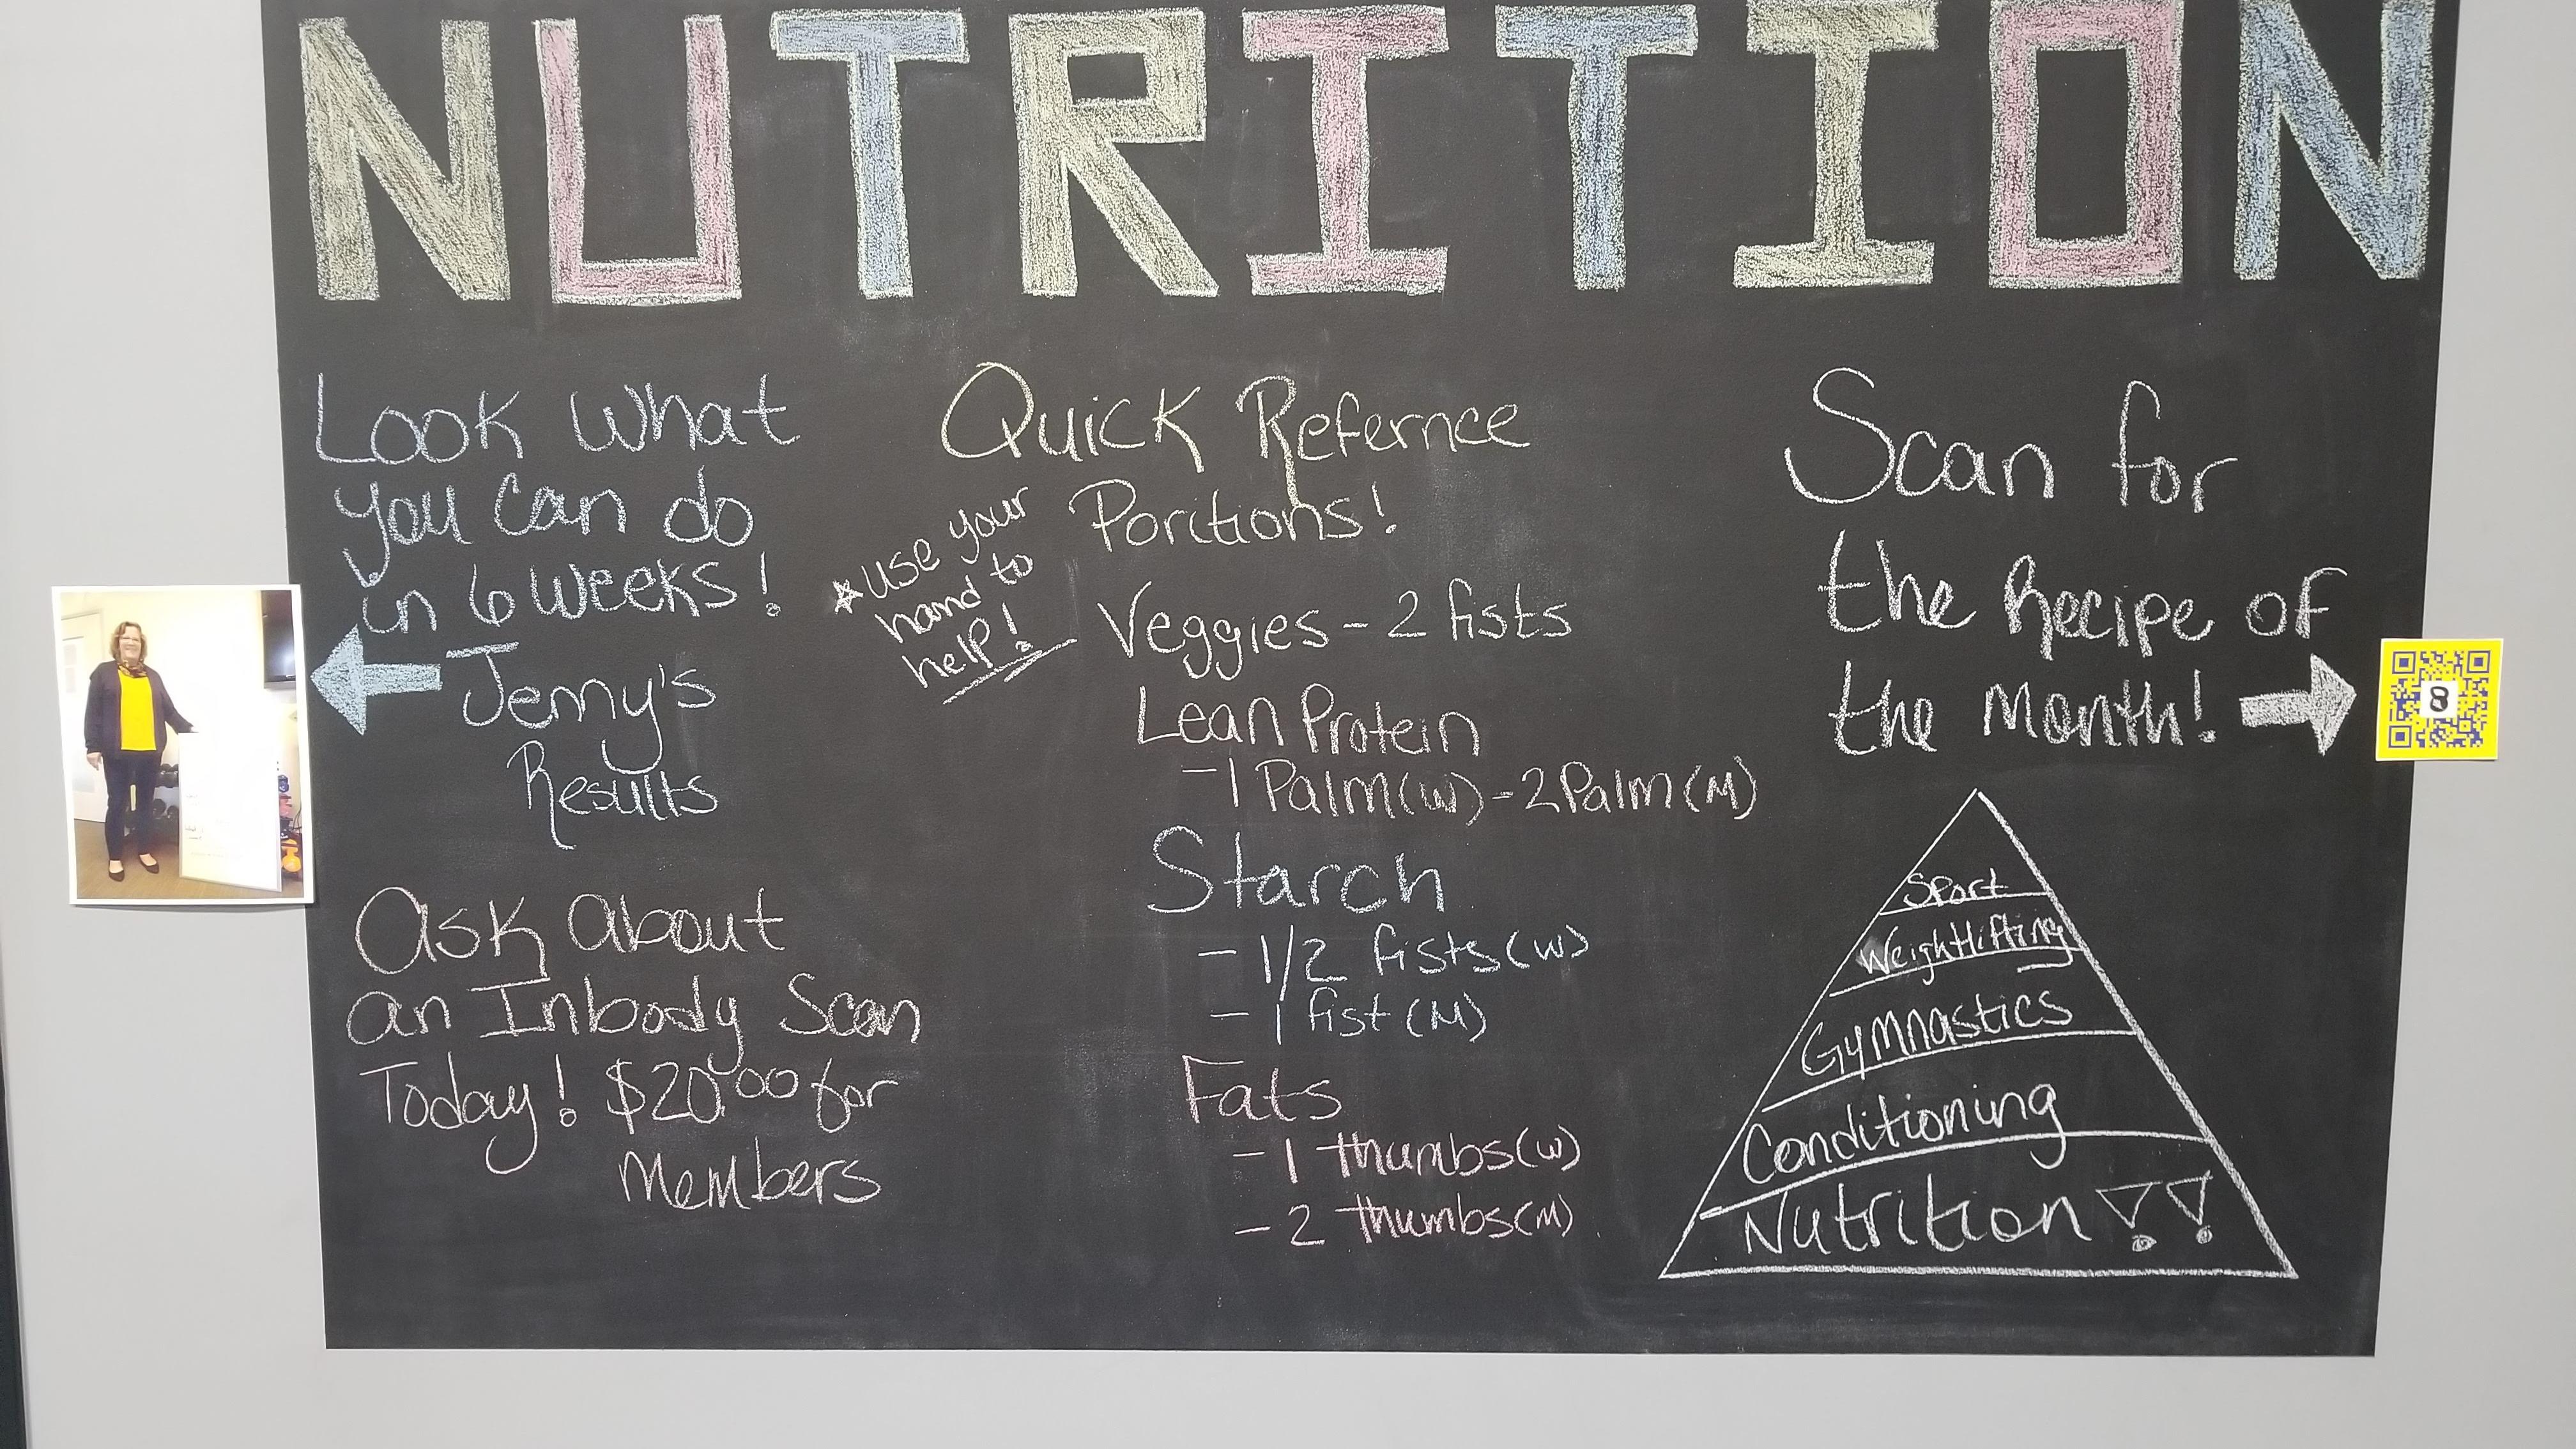 NUTRITION
Look what
you can do
in 6 weeks!
Jenny's
Results
Ask about
an Inbody Scan
Today! $20.00 for
Members
Quick Refernce
Poritions!
*use your
hand to
help!
Veggies - 2 fists
Lean Protein
- 1 Palm(w) - 2 Palm(M)
Starch
- 1/2 fists(w)
- 1 fist(M)
Fats
- 1 thumbs(w)
- 2 thumbs(M)
Scan for
the Recipe of
the Month!
8
Sport
Weightlifting
Gymnastics
Conditioning
Nutrition!!